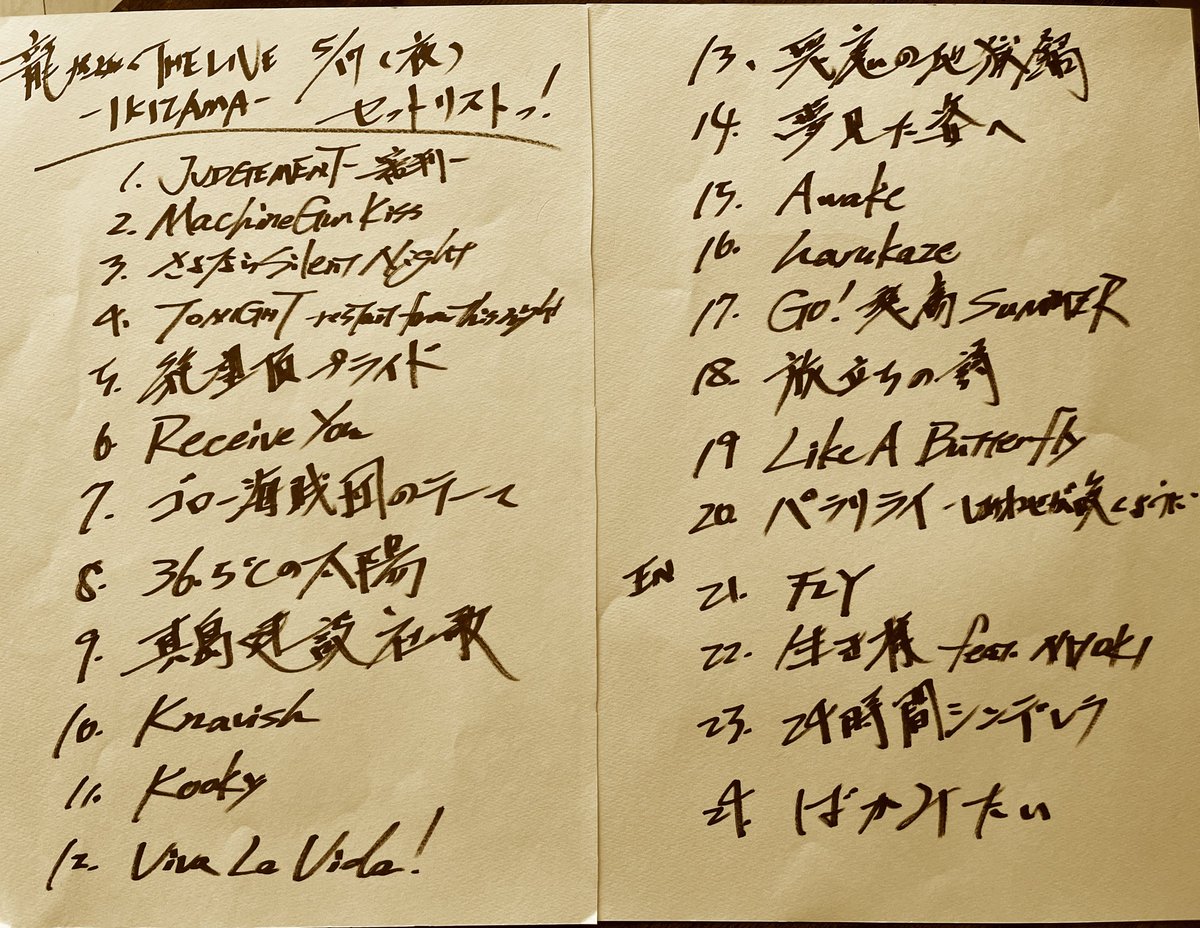 龍が如く THE LIVE 5/17(夜)
-IKIZAMA- セットリストっ!
1. JUDGEMENT-審判-
2. Machine Gun Kiss
3. さよならSilent Night
4. TONIGHT -restart from this night
5. 純望循プライド
6 Receive You
7. ゴロー海賊団のテーマ
8. 36.5℃の太陽
9. 真島建設 社歌
10. Knavish
11. Kooky
12. Viva La Vida!
13. 晃庵の地獄鍋
14. 夢見た客へ
15. Awake
16. harukaze
17. Go! 最高 SUMMER
18. 旅立ちの詩
19 Like A Butterfly
20. パラリライ -しあわせが咲くように-
EN 21. FLY
22. 生き様 feat. NAOKI
23. 24時間シンデレラ
24. ばかみたい